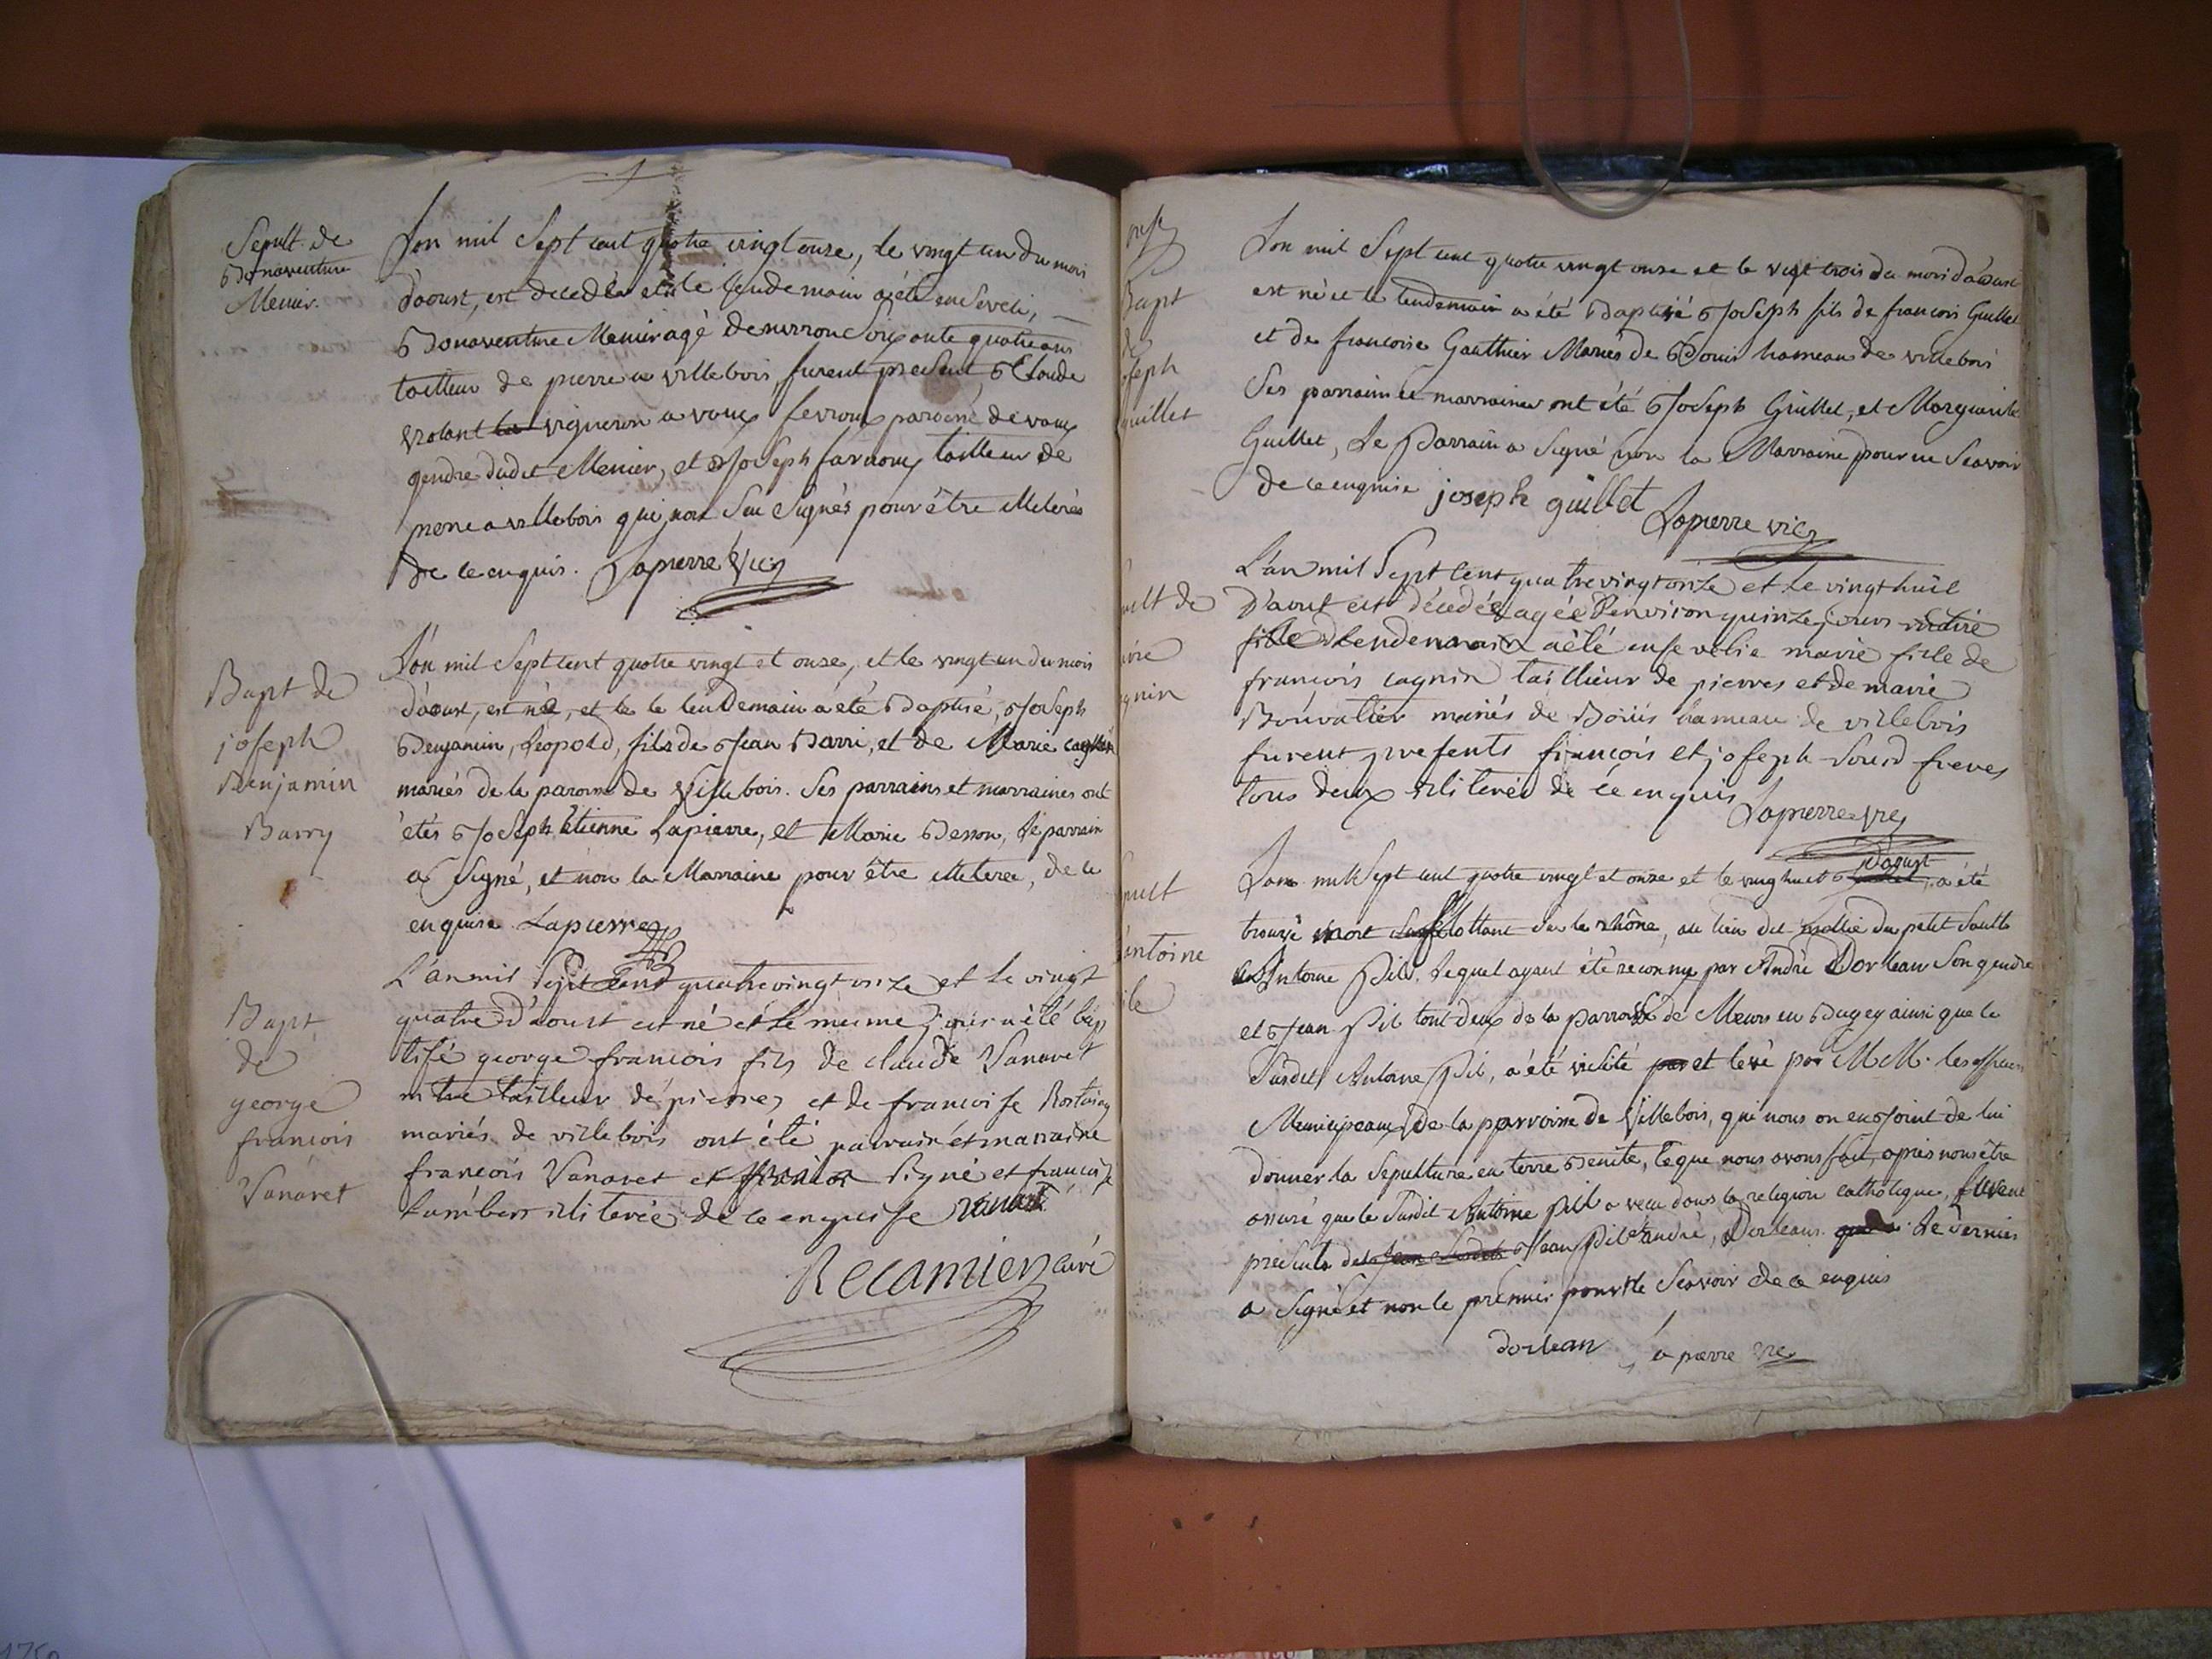 Sepult. de
Bonaventure
Menier.
L'an mil Sept cent quatre vingt onze, le vingt un du mois
d'aoust, est décédé et le lendemain a été enseveli,
Bonaventure Menier agé denviron Soixante quatre ans
tailleur de pierre a villebois, furent présent Claude
vigneron a vaux fevroux paroisse de vaux
gendre dudit Menier, et Joseph tailleur de
pierre a villebois qui non Seu Signés pour être illeterés
de ce enquis. Lapierre Vic
Bapt de
joseph
Benjamin
Barry
L'an mil Sept cent quatre vingt et onze, et le vingt un du mois
d'aoust, est né, et le le lendemain a été Baptisé, Joseph
Benjamin, Léopold, fils de Jean Barri, et de Marie cagnin
mariés de la paroisse de Villebois. Ses parrains et marraines ont
étés Joseph, Etienne Lapierre, et Marie Besson, Le parrain
a Signé, et non la Marraine pour être illeteree, de ce
enquise Lapierre
Bapt
de
george
francois
Vanaret
L'an mil Sept Cent quatre vingt onze et le vingt
quatre D'aoust est né et le meme jour a été bap
tisé george francois fils de claude Vanaret
mtre tailleur de pierres et de francoise Rostaing
mariés de villebois ont été parrain et marraine
francois Vanaret et signé et francoise
Lumbers illiterée de ce enquise vanaret
Recamier curé
Bapt
de
oseph
guillet
L'an mil Sept cent quatre vingt onze et le vigt trois du mois d'aoust
est né et le lendemain a été Baptisé Joseph fils de francois Guillet
et de francoise Gauthier Mariés de Bouis hameau de villebois
Ses parrain et marraines ont été Joseph Guillet, et Marguerite
Guillet, Le Parrain a Signé non la Marraine pour ne Scavoir
de ce enquise joseph guillet Lapierre vic
ult de
arie
gnin
L'an mil Sept Cent quatre vingt onze et le vingt huit
D'aout est décédée agée D'environ quinze jours
lendemain a été ensevelie marie fille de
francois cagnin taillieur de pierres et de marie
Bouvatier mariés de Boüis hameau de villebois
furent presents francois et joseph Sourd freres
tous deux illiterés de ce enquis Lapierre vic
pult
antoine
ile
L'an mil Sept cent quatre vingt et onze et le vingt huit d'aoust, a été
trouvé mort flottant Sur le rhône, au lieu dit mollie du petit Sault
Antoine Pile. Lequel ayant été reconnu par André Dorlean Son gendre
et Jean Pile tout deux de la parroisse de Meurs en Bugey ainsi que le
Susdit Antoine Pile, a été visité et levé par MM. les officiers
Municipeaux de la parroisse de Villebois, qui nous on enjoint de lui
donner la Sepulture en terre Benite, ce que nous avons fait, après nous être
assuré que le Susdit Antoine Pile a vécu dans la religion catholique, furent
présents Jean Pile et andré, Dorleans. Le dernier
a Signé et non le premier pour ne Scavoir de ce enquis
dorlean Lapierre vic